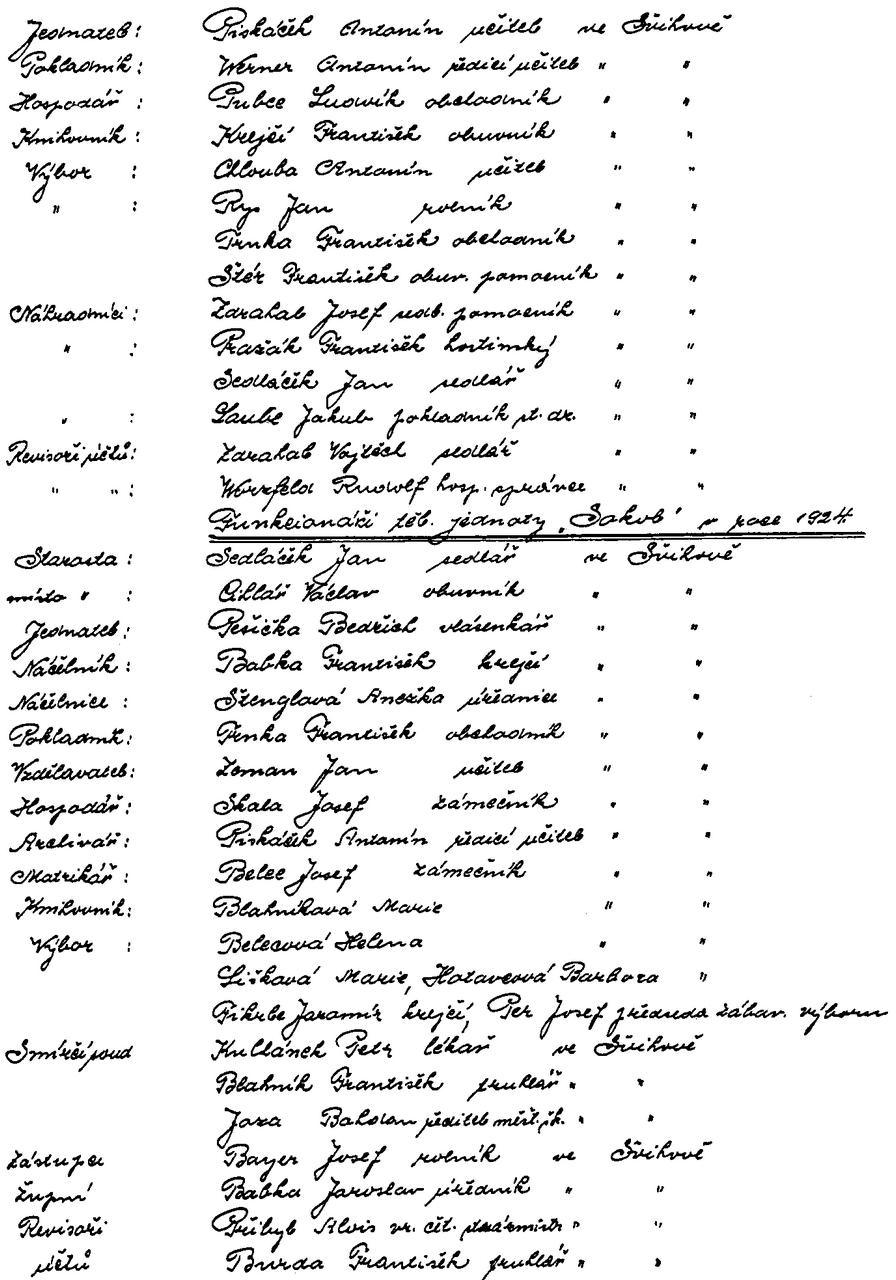 Jednatel: Piskáček Antonín učitel ve Švihově
Pokladník: Werner Antonín řídící učitel " "
Hospodář: Pubec Ludvík obchodník " "
Knihovník: Krejčí František obuvník " "
Výbor : Chlouba Antonín učitel " "
" : Rys Jan rolník " "
Trnka František obchodník " "
Štér František obuv. pomocník " "
Náhradníci: Zdrahal Josef sedl. pomocník " "
" : Pražák František hostinský " "
Sedláček Jan sedlář " "
" : Laube Jakub pokladník st. dr. " "
Revisoři účtů: Zdrahal Vojtěch sedlář " "
" ": Rudolf hosp. správce " "
Funkcionáři těl. jednoty „Sokol" v roce 1924
Starosta : Sedláček Jan sedlář ve Švihově
místo " : Cihlář Václav obuvník " "
Jednatel: Pešička Bedřich vlásenkář " "
Náčelník: Babka František krejčí " "
Náčelnice: Štenglová Anežka úřednice " "
Pokladník: Trnka František obchodník " "
Vzdělavatel: Zeman Jan učitel " "
Hospodář: Skala Josef zámečník " "
Archivář: Piskáček Antonín řídící učitel " "
Matrikář: Belec Josef zámečník " "
Knihovník: Blahníková Marie " "
Výbor : Belecová Helena " "
Lišková Marie, Hotovcová Barbora "
Fikrle Jaromír krejčí, Per Josef předseda zábav. výboru
Smírčí soud Kublánek Petr lékař ve Švihově
Blahník František truhlář " "
Bohdan ředitel měšť. šk. " "
Zástupci Bayer Josef rolník ve Švihově
župní Babka Jaroslav úředník " "
Revisoři Přibyl Alois vr. čet. strážmistr " "
účtů Burda František truhlář " "